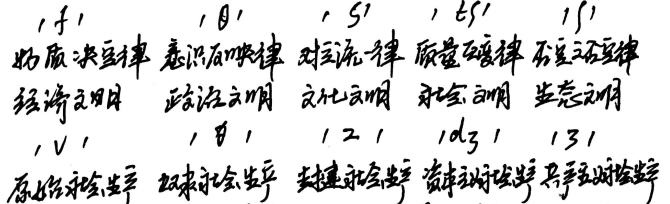 /f/ /θ/ /s/ /tʃ/ /ʃ/
物质决定律 意识反映律 对立统一律 质量互变律 否定之否定律
经济文明 政治文明 文化文明 社会文明 生态文明
/v/ /ð/ /z/ /dʒ/ /ʒ/
原始社会生产 奴隶社会生产 封建社会生产 资本主义社会生产 共产主义社会生产